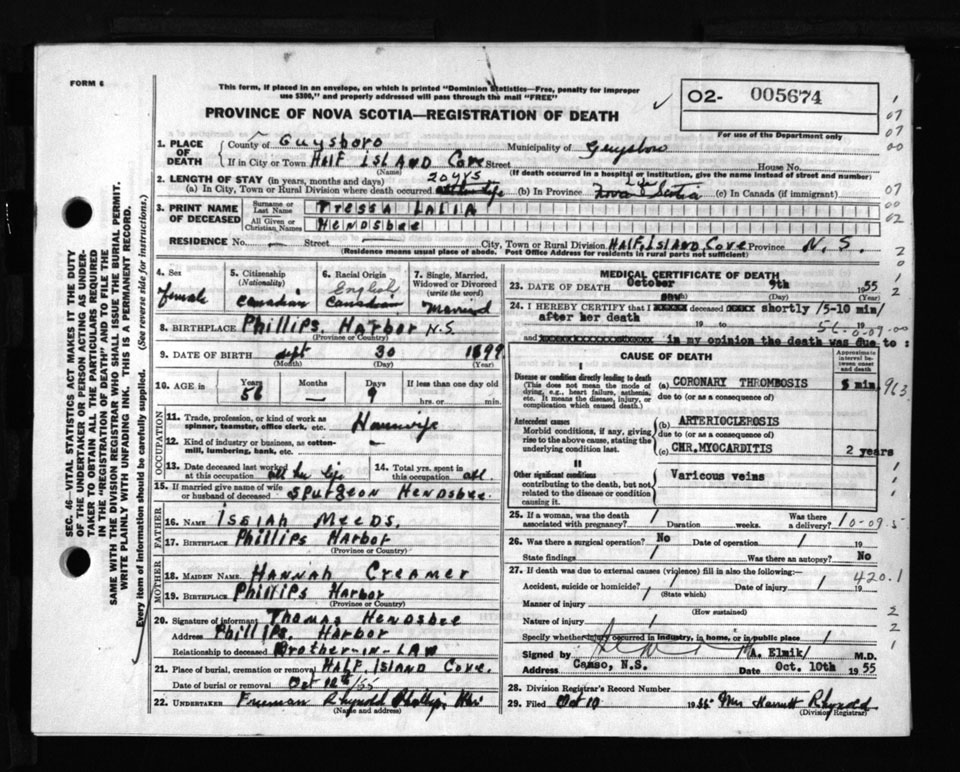 FORM 6
This form, if placed in an envelope, on which is printed "Dominion Statistics—Free, penalty for improper
use $300," and properly addressed will pass through the mail "FREE"
02- 005674
PROVINCE OF NOVA SCOTIA—REGISTRATION OF DEATH
For use of the Department only
1. PLACE OF DEATH
County of Guysboro Municipality of Guysboro
If in City or Town HALF ISLAND COVE Street House No.
(Name) (If death occurred in a hospital or institution, give the name instead of street and number)
2. LENGTH OF STAY (in years, months and days)
(a) In City, Town or Rural Division where death occurred 20 yrs (b) In Province Life Nova Scotia (c) In Canada (if immigrant)
3. PRINT NAME OF DECEASED
Surname or Last Name TRESSA LALIA
All Given or Christian Names HENDSBEE
RESIDENCE No. — Street — City, Town or Rural Division HALF ISLAND COVE Province N.S.
(Residence means usual place of abode. Post Office Address for residents in rural parts not sufficient)
4. Sex female
5. Citizenship (Nationality) Canadian
6. Racial Origin English Canadian
7. Single, Married, Widowed or Divorced (write the word) Married
8. BIRTHPLACE Phillips Harbor N.S.
(Province or Country)
9. DATE OF BIRTH Sept 30 1899
(Month) (Day) (Year)
10. AGE in Years 56 Months — Days 9 If less than one day old
hrs. or min.
OCCUPATION
11. Trade, profession, or kind of work as spinner, teamster, office clerk, etc. Housewife
12. Kind of industry or business, as cotton-mill, lumbering, bank, etc. —
13. Date deceased last worked at this occupation all her life
14. Total yrs. spent in this occupation all
15. If married give name of wife or husband of deceased SPURGEON HENDSBEE
FATHER
16. NAME ISEIAH MEEDS.
17. BIRTHPLACE Phillips Harbor
(Province or Country)
MOTHER
18. MAIDEN NAME HANNAH CREAMER
19. BIRTHPLACE Phillips Harbor
(Province or Country)
20. Signature of informant Thomas Hendsbee
Address Phillips Harbor
Relationship to deceased Brother-in-LAW
21. Place of burial, cremation or removal HALF ISLAND COVE.
Date of burial or removal Oct 12th/55
22. UNDERTAKER Freeman Rhynold Phillips Har
(Name and address)
MEDICAL CERTIFICATE OF DEATH
23. DATE OF DEATH October 9th 1955
(Month) (Day) (Year)
24. I HEREBY CERTIFY that I saw deceased shortly /5-10 min/
after her death 19 to 19
and in my opinion the death was due to :
CAUSE OF DEATH
Approximate interval between onset and death
I
Disease or condition directly leading to death
(This does not mean the mode of dying, e.g., heart failure, asthenia, etc. It means the disease, injury, or complication which caused death.)
(a) CORONARY THROMBOSIS 5 min.
due to (or as a consequence of)
Antecedent causes
Morbid conditions, if any, giving rise to the above cause, stating the underlying condition last
(b) ARTERIOCLEROSIS
due to (or as a consequence of)
(c) CHR.MYOCARDITIS 2 years
II
Other significant conditions
contributing to the death, but not related to the disease or condition causing it.
Varicous veins
25. If a woman, was the death associated with pregnancy? / Duration weeks. Was there a delivery? /
26. Was there a surgical operation? No Date of operation / 19
State findings / Was there an autopsy? No
27. If death was due to external causes (violence) fill in also the following:—
Accident, suicide or homicide? / Date of injury / 19
(State which)
Manner of injury /
(How sustained)
Nature of injury /
Specify whether injury occurred in industry, in home, or in public place /
Signed by /A. Elmik/ M.D.
Address Canso, N.S. Date Oct. 10th 1955
28. Division Registrar's Record Number
29. Filed Oct 10 1955 Mrs Harriett Rhynold
(Division Registrar)
420.1
963
SEC. 46—VITAL STATISTICS ACT MAKES IT THE DUTY
OF THE UNDERTAKER OR PERSON ACTING AS UNDER-
TAKER TO OBTAIN ALL THE PARTICULARS REQUIRED
IN THE "REGISTRATION OF DEATH" AND TO FILE THE
SAME WITH THE DIVISION REGISTRAR WHO SHALL ISSUE THE BURIAL PERMIT.
WRITE PLAINLY WITH UNFADING INK. THIS IS A PERMANENT RECORD.
Every item of information should be carefully supplied. (See reverse side for instructions.)